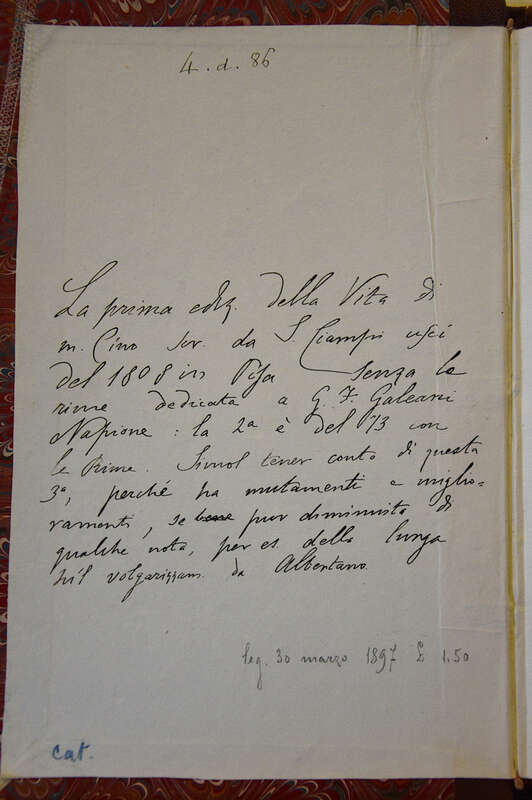 4. d. 86
La prima ediz. della Vita di
m. Cino scr. da S. Ciampi uscì
del 1808 in Pisa senza le
rime dedicata a G. F. Galeani
Napione : la 2a è del 13 con
le Rime. Simol tener conto di questa
3a, perché ha mutamenti e miglio-
ramenti, se bene pur diminuita di
qualche nota, per es. della lunga
sul volgarizzam. da Albertano
leg. 30 marzo 1897 £ 1.50
cat.